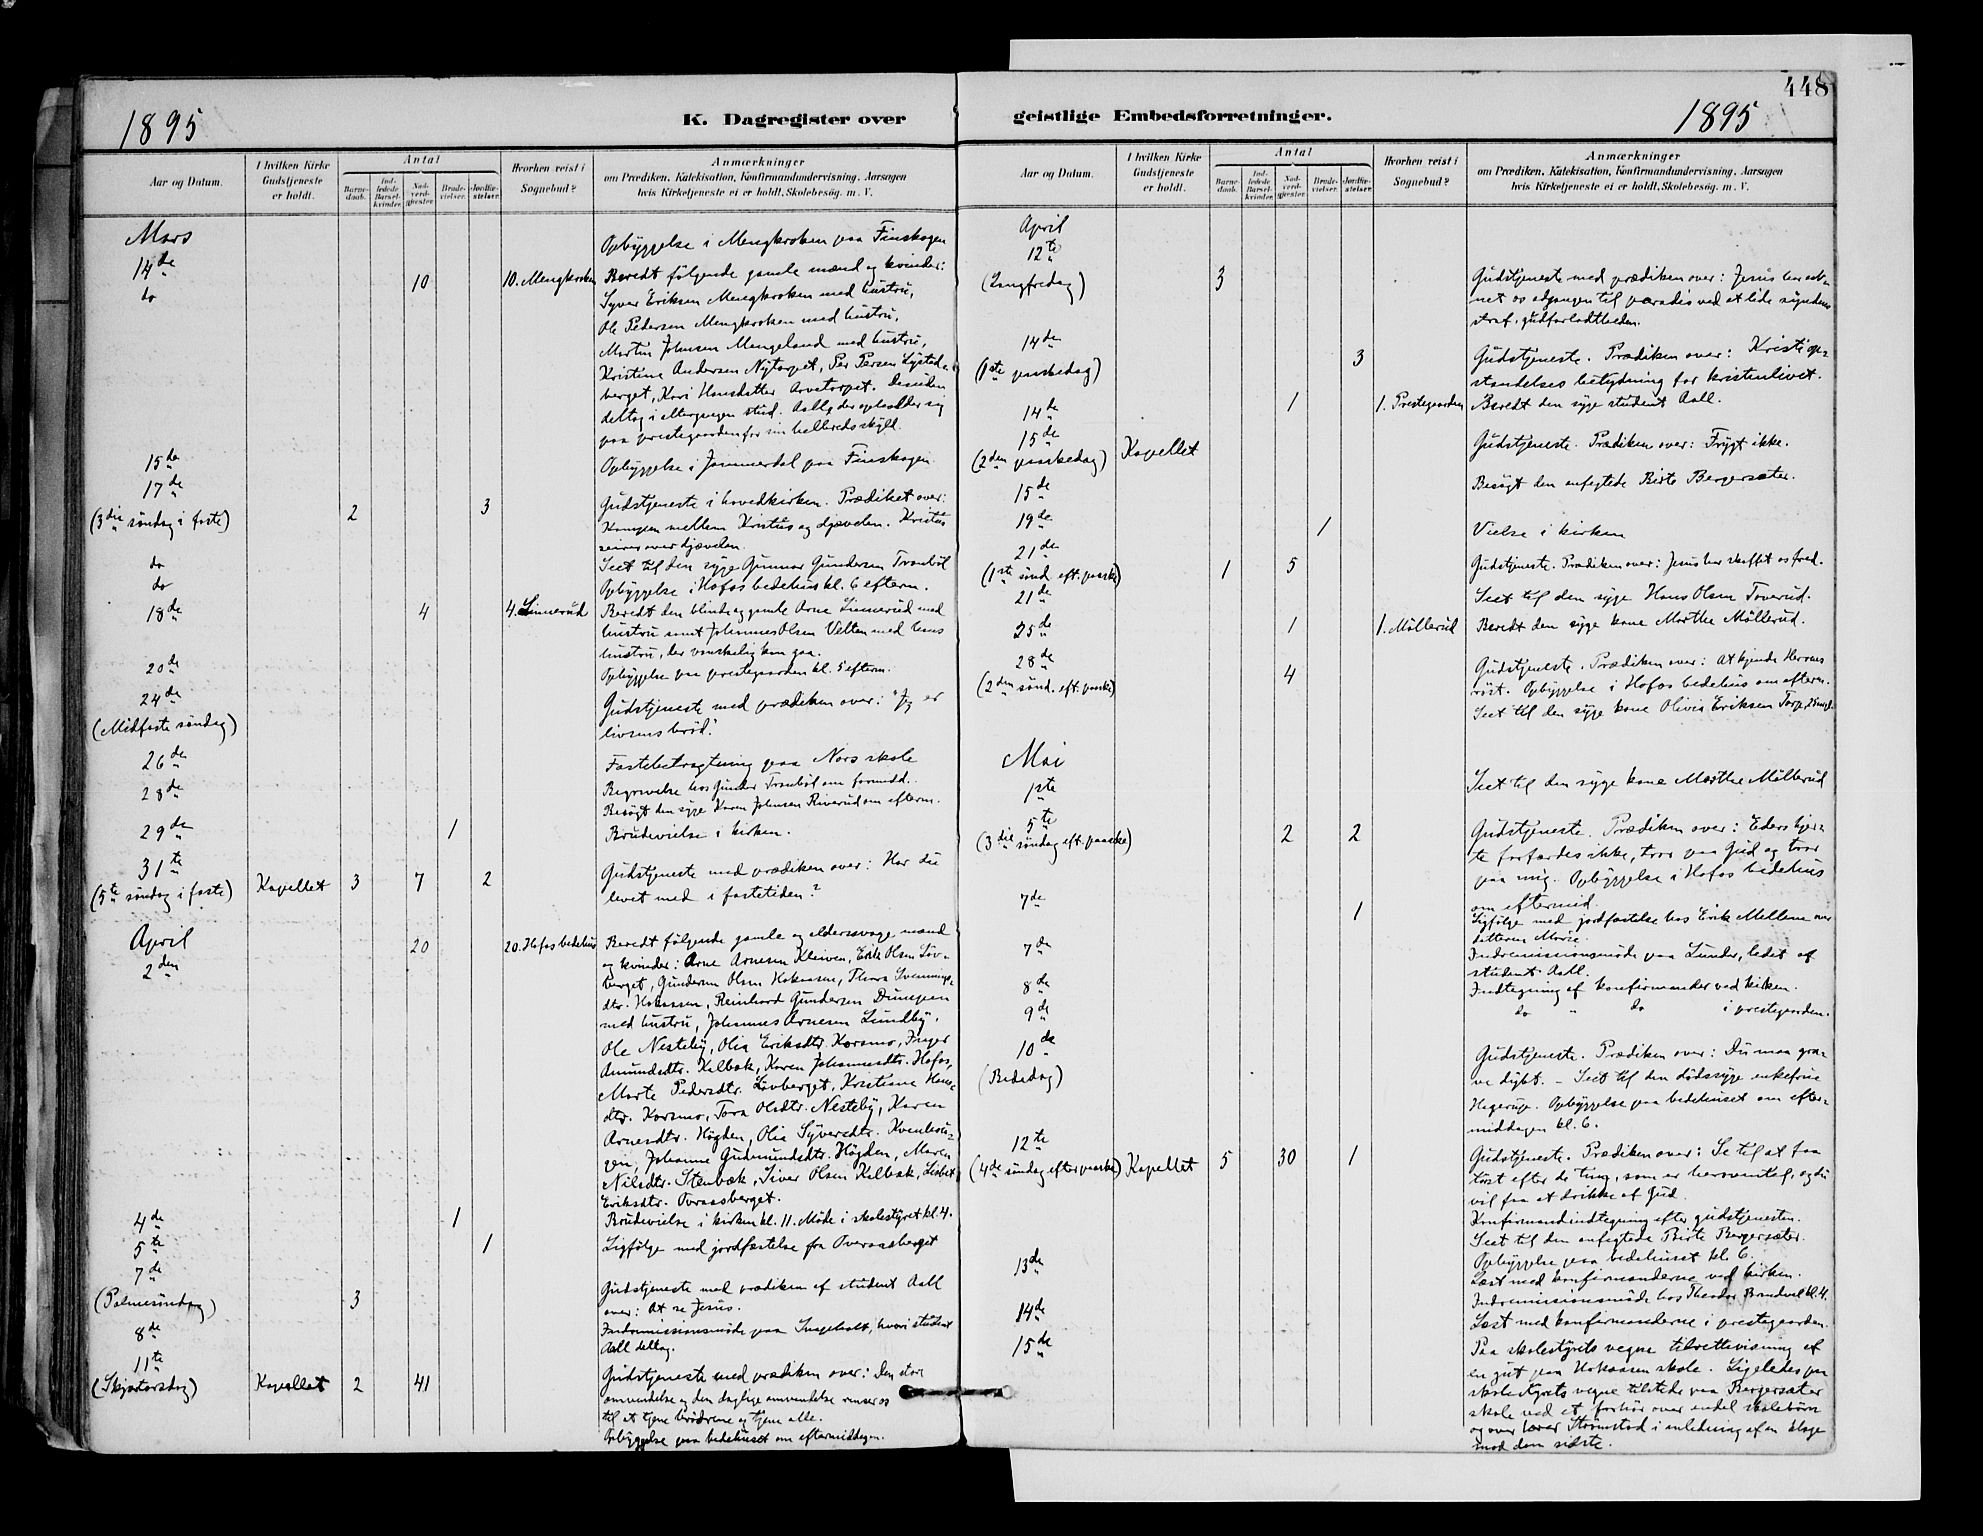 448
1895
K. Dagregister over
geistlige Embedsforretninger.
1895
Aar og Datum.
I hvilken Kirke Gudstjeneste er holdt.
Antal
Barnedaab.
Indledede Barselkvinder.
Nadverdgjester.
Brudevielser.
Jordfæstelser.
Hvorhen reist i Sognebud?
Anmærkninger
om Prædiken, Katekisation, Konfirmandundervisning, Aarsagen
hvis Kirketjeneste ei er holdt, Skolebesøg. m. V.
Mars
14de
Opbyggelse i Mengkroken paa Finskogen
do 10 10. Mengkroken Beredt følgende gamle mænd og kvinder:
Syver Eriksen Mengkroken med hustru,
Ole Pedersen Mengkroken med hustru,
Martin Johnsen Mengeland med hustru,
Kristine Andersen Nytorpet, Per Persen
berget, Kari Hansdatter Arvetorpet. Desuden
deltog i altergangen stud. Aall, der opholder sig
paa prestegaarden for sin helbreds skyld.
15de Opbyggelse i Jammerdal paa Finskogen
17de
(3die søndag i faste) 2 3 Gudstjeneste i hovedkirken. Prædiket over:
Kampen mellem Kristus og djævelen. Kristus
seirer over djævelen.
do Seet til den syge Gunnar Gundersen Tronbøl
do Opbyggelse i Hofos bedehus kl. 6 efterm.
18de 4 4. Linnerud Beredt den blinde og gamle Arne Linnerud med
hustru samt Johannes Olsen Velten med hans
hustru, der vanskelig kan gaa.
20de Opbyggelse paa prestegaarden kl. 5 efterm.
24de
(Midfaste søndag) Gudstjeneste med prædiken over: "Jeg er
livsens brød."
26de Fastebetragtning paa Nors skole
28de Begravelse hos Gunder Tronbøl om formidd.
Besøgt den syge Karen Johnsen Riverud om efterm.
29de 1 Brudevielse i kirken.
31te
(5te søndag i faste) Kapellet 3 7 2 Gudstjeneste med prædiken over: Har du
levet med i fastetiden?
April
2den 20 20. Hofos bedehus Beredt følgende gamle og aldersvage mænd
og kvinder: Arne Arnesen Kleiven, Erik Olsen Løv-
berget, Gundersen Olsen Hokaasen, Thora Svennings-
dtr. Hokaasen, Reinhard Gundersen
med hustru, Johannes Arnesen Lundby,
Ole Nesteby, Olia Eriksdtr. Korsmo, Inger
Amundsdtr. Kelbak, Karen Johannesdtr. Hofos,
Marte Pedersdtr. Løvberget, Kristiane Hans-
dtr. Korsmo, Tora Olsdtr. Nesteby, Karen
Arnesdtr. Høgden, Olia Syversdtr.
Johanne Gudmundsdtr. Høgden, Maren
Nilsdtr. Stenbæk, Siver Olsen Kelbak, Lisbet
Eriksdtr. Overaasberget.
4de 1 Brudevielse i kirken kl. 11. Møde i skolestyret kl. 4.
5te 1 Ligfølge med jordfæstelse fra Overaasberget
7de
(Palmesøndag) 3 Gudstjeneste med prædiken af student Aall
over: At se Jesus.
8de Indremissionsmøde paa hvori student
Aall deltog.
11te
(Skjærtorsdag) Kapellet 2 41 Gudstjeneste med prædiken over: Den store
omvendelse og den daglige omvendelse renser os
til at tjene brødrene og tjene alle.
Opbyggelse paa bedehuset om eftermiddagen.
Aar og Datum.
I hvilken Kirke Gudstjeneste er holdt.
Antal
Barnedaab.
Indledede Barselkvinder.
Nadverdgjester.
Brudevielser.
Jordfæstelser.
Hvorhen reist i Sognebud?
Anmærkninger
om Prædiken, Katekisation, Konfirmandundervisning, Aarsagen
hvis Kirketjeneste ei er holdt, Skolebesøg. m. V.
April
12te
(Langfredag) 3 Gudstjeneste med prædiken over: Jesus har aab-
net os adgangen til paradis ved at lide syndens
straf, gudforladtheden.
14de
(1ste paaskedag) 3 Gudstjeneste. Prædiken over: Kristi op-
standelses betydning for kristenlivet.
14de 1 1. Prestegaarden Beredt den syge student Aall.
15de
(2den paaskedag) Kapellet Gudstjeneste. Prædiken over: Frygt ikke.
15de Besøgt den anfegtede Birte Bergersæter.
19de 1 Vielse i kirken
21de
(1ste sønd. eft. paaske) 1 5 Gudstjeneste. Prædiken over: Jesus har skaffet os fred.
21de Seet til den syge Hans Olsen Toverud.
25de 1 1. Møllerud Beredt den syge kone Marthe Møllerud.
28de
(2den sønd. eft. paaske) 4 Gudstjeneste. Prædiken over: At kjende Herrens
røst. Opbyggelse i Hofos bedehus om efterm.
Seet til den syge kone Olivia Eriksen Torp
Mai
1ste Seet til den syge kone Marthe Møllerud
5te
(3die søndag eft. paaske) 2 2 Gudstjeneste. Prædiken over: Eders hjer-
te forfærdes ikke, tror paa Gud og tror
paa mig. Opbyggelse i Hofos bedehus
om eftermid.
7de 1 Ligfølge med jordfæstelse hos Erik Mellem over
datteren Marie.
7de Indremissionsmøde paa Lunder, ledet af
student Aall.
8de Indtegning af konfirmander ved kirken.
9de do " do i prestegaarden.
10de
(Bededag) Gudstjeneste. Prædiken over: Du maa gra-
ve dybt. – Seet til den dødssyge enkefrue
Hagerup. Opbyggelse paa bedehuset om efter-
middagen kl. 6.
12te
(4de søndag efter paaske) Kapellet 5 30 1 Gudstjeneste. Prædiken over: Se til at faa
tørst efter de ting, som er heroventil, og du
vil faa at drikke af Gud.
Konfirmandindtegning efter gudstjenesten.
Seet til den anfegtede Birte Bergersæter.
Opbyggelse paa bedehuset kl. 6.
13de Læst med konfirmanderne ved kirken.
Indremissionsmøde hos Theodor Brandvol kl. 4.
14de Læst med konfirmanderne i prestegaarden.
15de Paa skolestyrets vegne tilrettevisning af
en gut paa Hokaasen skole. Ligeledes paa
skolestyrets vegne tilstede paa Bergersæter
skole ved et forhør over endel skolebørn
og over lærer Strømstad i anledning af en klage
mod den sidste.